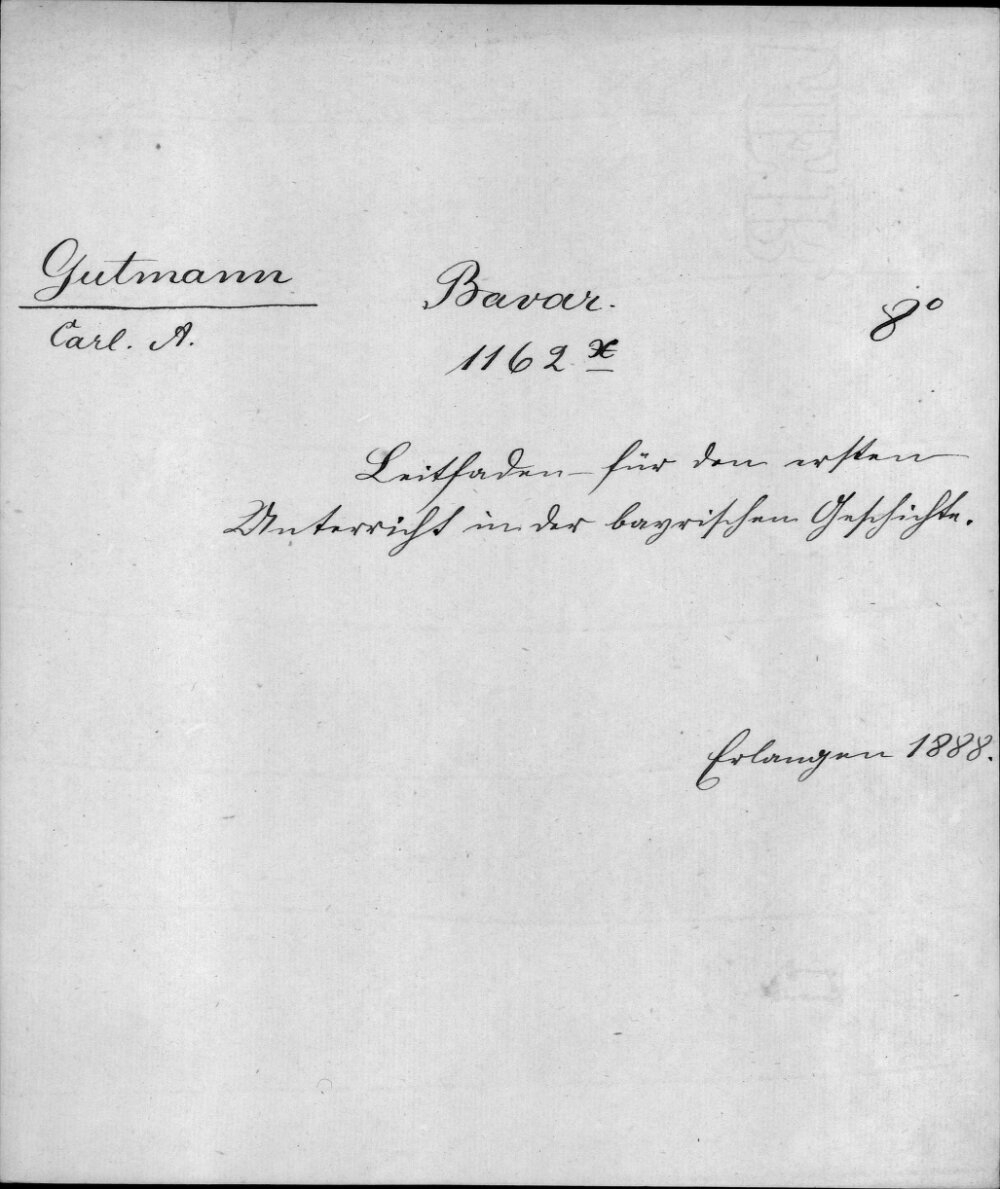 Gutmann
Carl. A.
Bavar. 8°
1162 x
Leitfaden für den ersten
Unterricht in der bayrischen Geschichte.
Erlangen 1888.